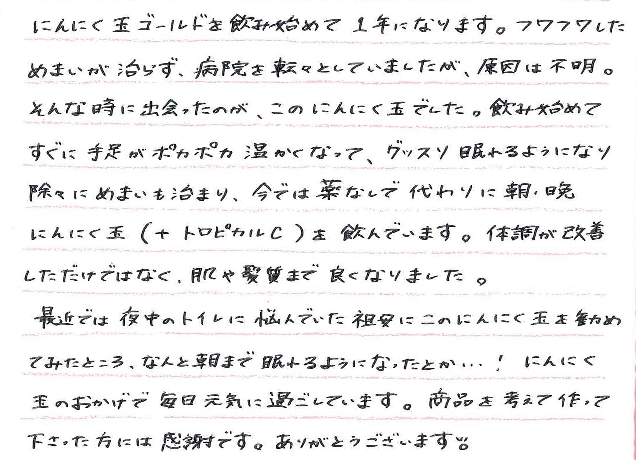 にんにく玉ゴールドを飲み始めて1年になります。フワフワした
めまいが治らず、病院を転々としていましたが、原因は不明。
そんな時に出会ったのが、このにんにく玉でした。飲み始めて
すぐに手足がポカポカ温かくなって、グッスリ眠れるようになり
除々にめまいも治まり、今では薬なしで代わりに朝・晩
にんにく玉(+トロピカルC)を飲んでいます。体調が改善
しただけではなく、肌や髪質まで良くなりました。
最近では夜中のトイレに悩んでいた祖母にこのにんにく玉を勧め
てみたところ、なんと朝まで眠れるようになったとか…!にんにく
玉のおかげで毎日元気に過ごしています。商品を考えて作って
下さった方には感謝です。ありがとうございます